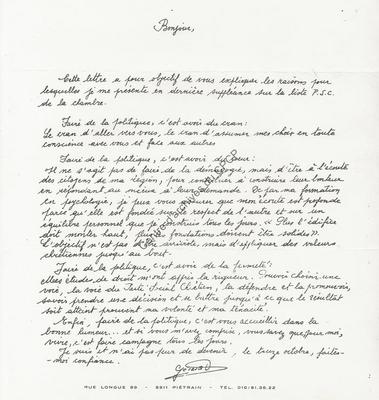 Bonjour,
Cette lettre a pour objectif de vous expliquer les raisons pour
lesquelles je me présente en dernière suppléance sur la liste P.S.C.
de la chambre.
Faire de la politique, c'est avoir du cran:
Le cran d'aller vers vous, le cran d'assumer mes choix en toute
conscience avec vous et face aux autres
Faire de la politique, c'est avoir du cœur:
Il ne s'agit pas de faire de la démagogie, mais d'être à l'écoute
des citoyens de ma région, pour construire leur bonheur
en répondant au mieux à leur demande. De par ma formation
en psychologie, je puis vous assurer que mon écoute est profonde
parce qu'elle est fondée sur le respect de l'autre et sur un
équilibre personnel que je construis tous les jours. « Plus l'édifice
doit monter haut, plus les fondations doivent être solides ».
L'objectif n'est pas d'être arriviste, mais d'appliquer des valeurs
chrétiennes jusqu'au bout.
Faire de la politique, c'est avoir de la fermeté:
études de droit m'ont appris la rigueur. Pouvoir choisir une
voie, la voie du Parti Social Chrétien, la défendre et la promouvoir,
savoir prendre une décision et se battre jusqu'à ce que le résultat
soit atteint prouvent ma volonté et ma ténacité.
Enfin, faire de la politique, c'est vous accueillir dans la
bonne humeur... et si vous m'avez comprise, vous savez que, pour moi,
vivre, c'est faire campagne tous les jours.
Je suis et n'ai pas peur de devenir, le treize octobre, faites-
moi confiance.
RUE LONGUE 99 - 5911 PIÉTRAIN - TEL. 010/81.35.22